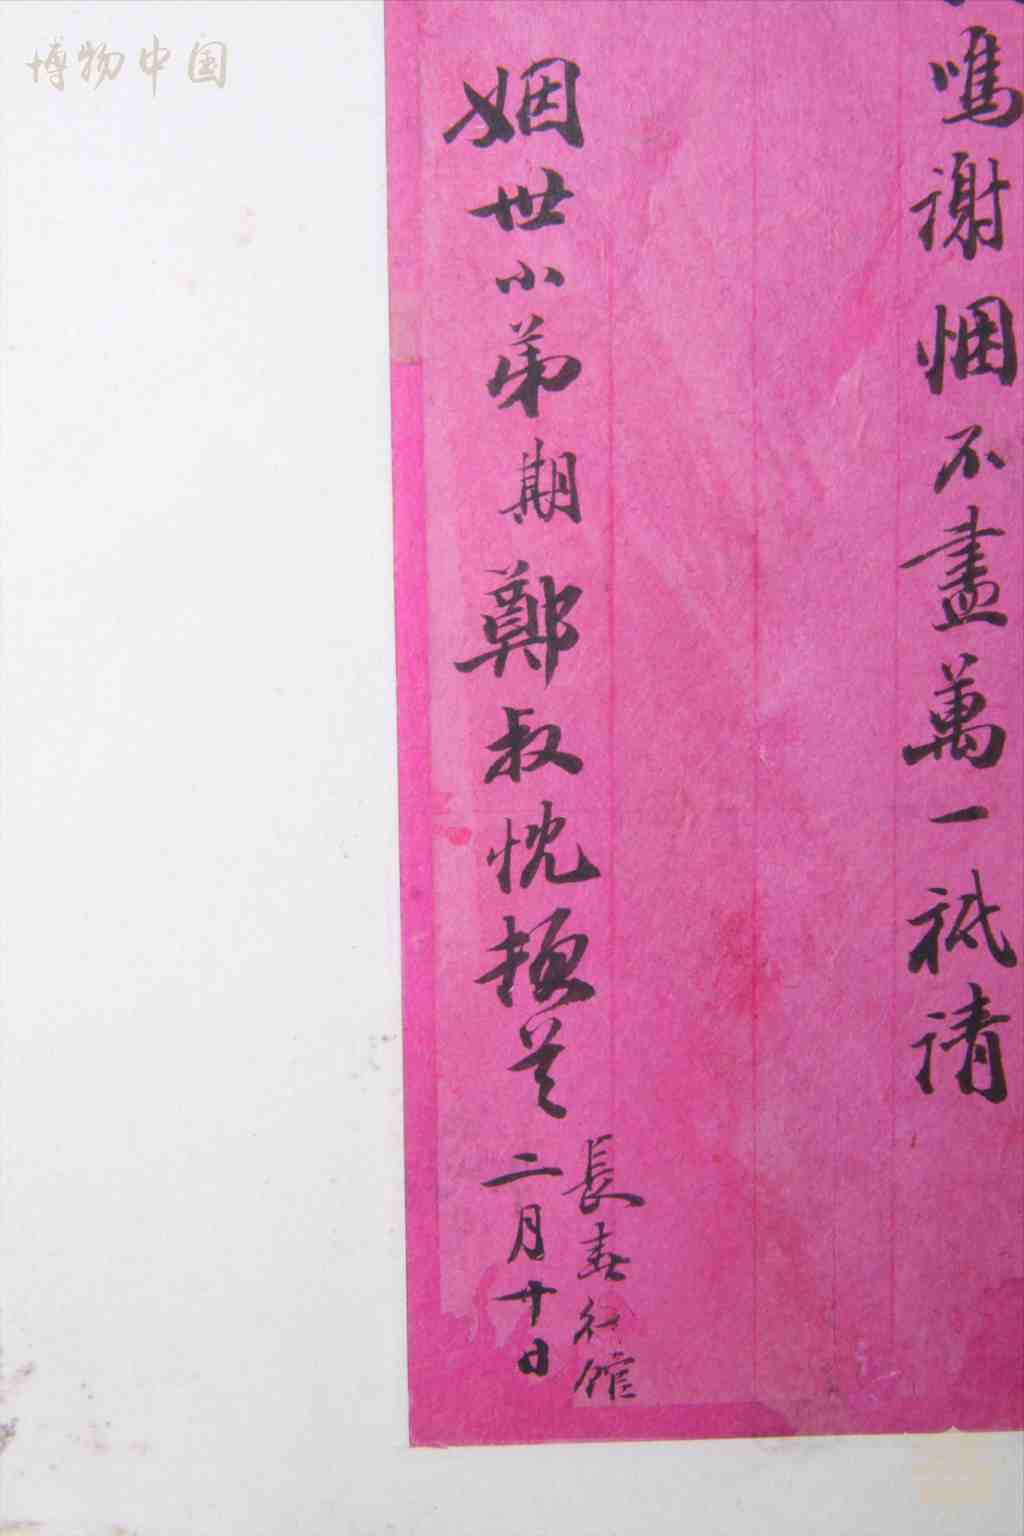 博物中国
鳴謝悃不盡萬一祗請
姻世小弟期鄭叔忱頓首
長春行館
二月廿日